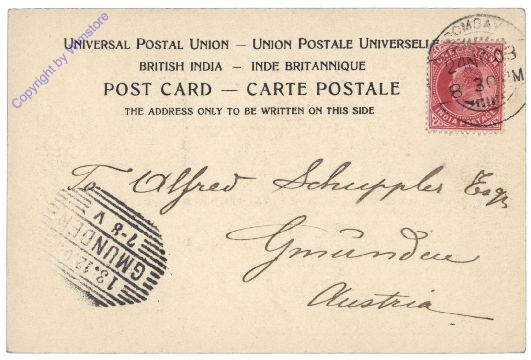 Copyright by Wilnstore
UNIVERSAL POSTAL UNION — UNION POSTALE UNIVERSELLE
BRITISH INDIA — INDE BRITANNIQUE
POST CARD — CARTE POSTALE
THE ADDRESS ONLY TO BE WRITTEN ON THIS SIDE
BOMBAY
03
8 30 PM
INDIA POSTAGE
To Alfred Schuppler Esq
Gmünden
Austria
GMUNDEN
7-8 V